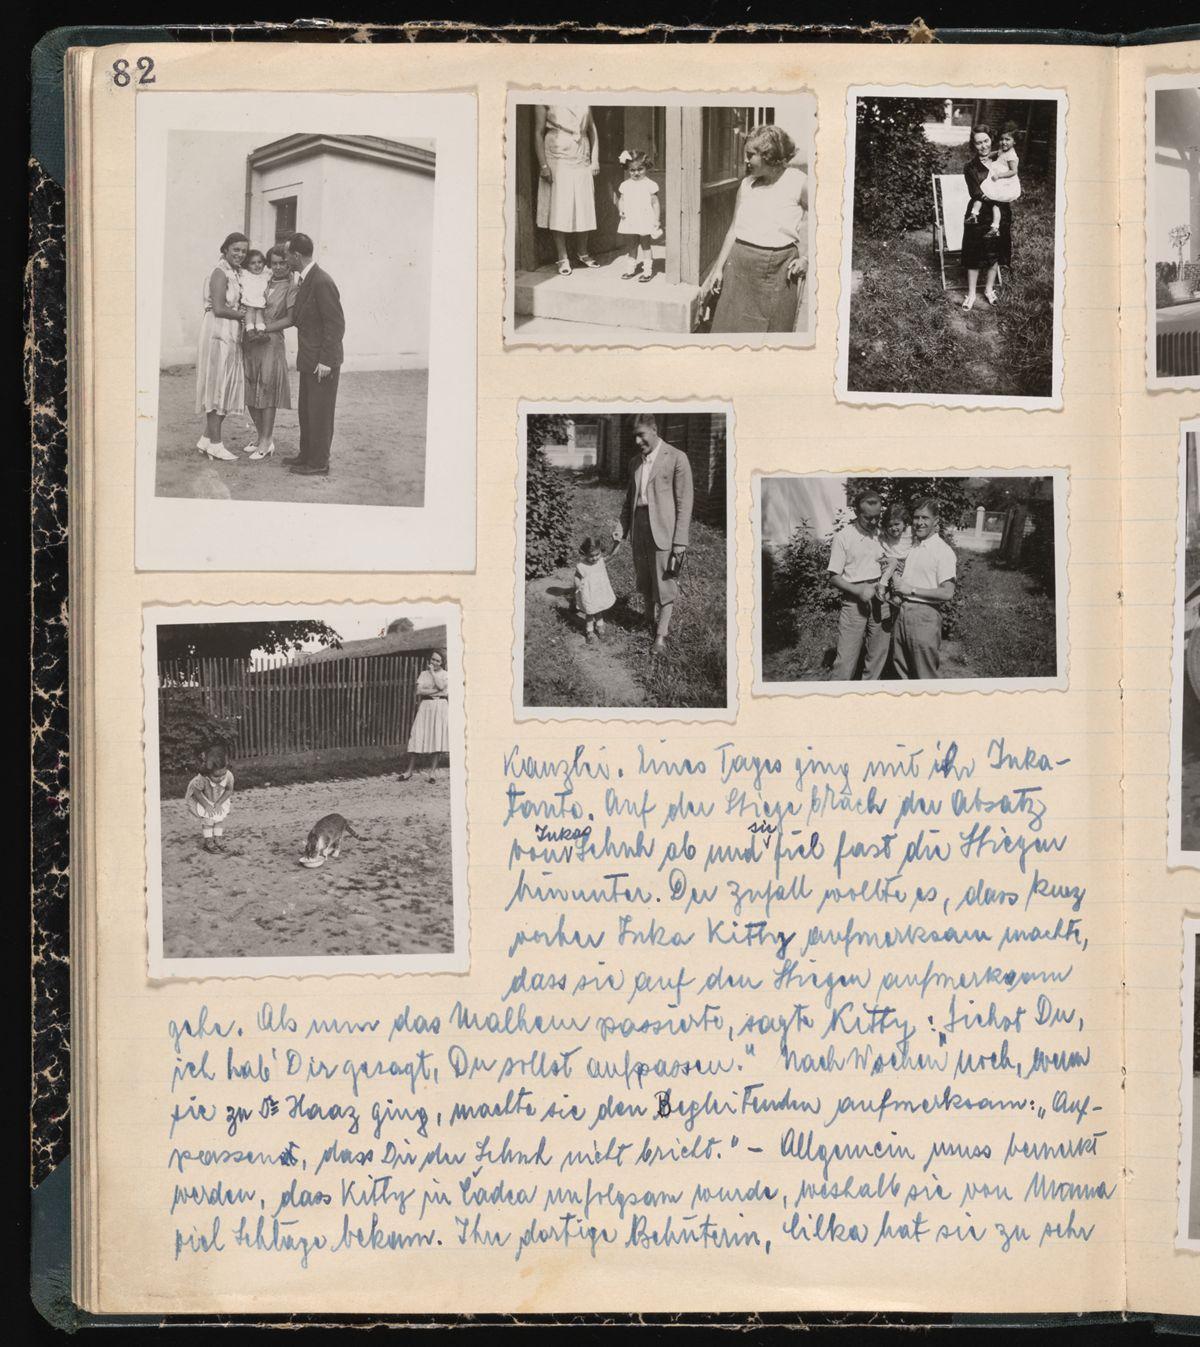 82
Kanzlei. Eines Tages ging mit ihr Inka-
tante. Auf der Stiege brach der Absatz
Inkas sie
vom Schuh ab und fiel fast die Stiegen
hinunter. Der Zufall wollte es, dass kurz
vorher Inka Kitty aufmerksam machte,
dass sie auf den Stiegen aufmerksam
gehe. Als nun das Malheur passierte, sagte Kitty: „Siehst Du,
ich hab' Dir gesagt, Du sollst aufpassen." Nach Wochen noch, wenn
sie zu Dr Haaz ging, machte sie den Begleitenden aufmerksam: „Auf-
passen, dass Dir der Schuh nicht bricht." – Allgemein muss bemerkt
werden, dass Kitty in Čadca unfolgsam wurde, weshalb sie von Mama
viel Schläge bekam. Ihre dortige Behüterin, Cilka hat sie zu sehr